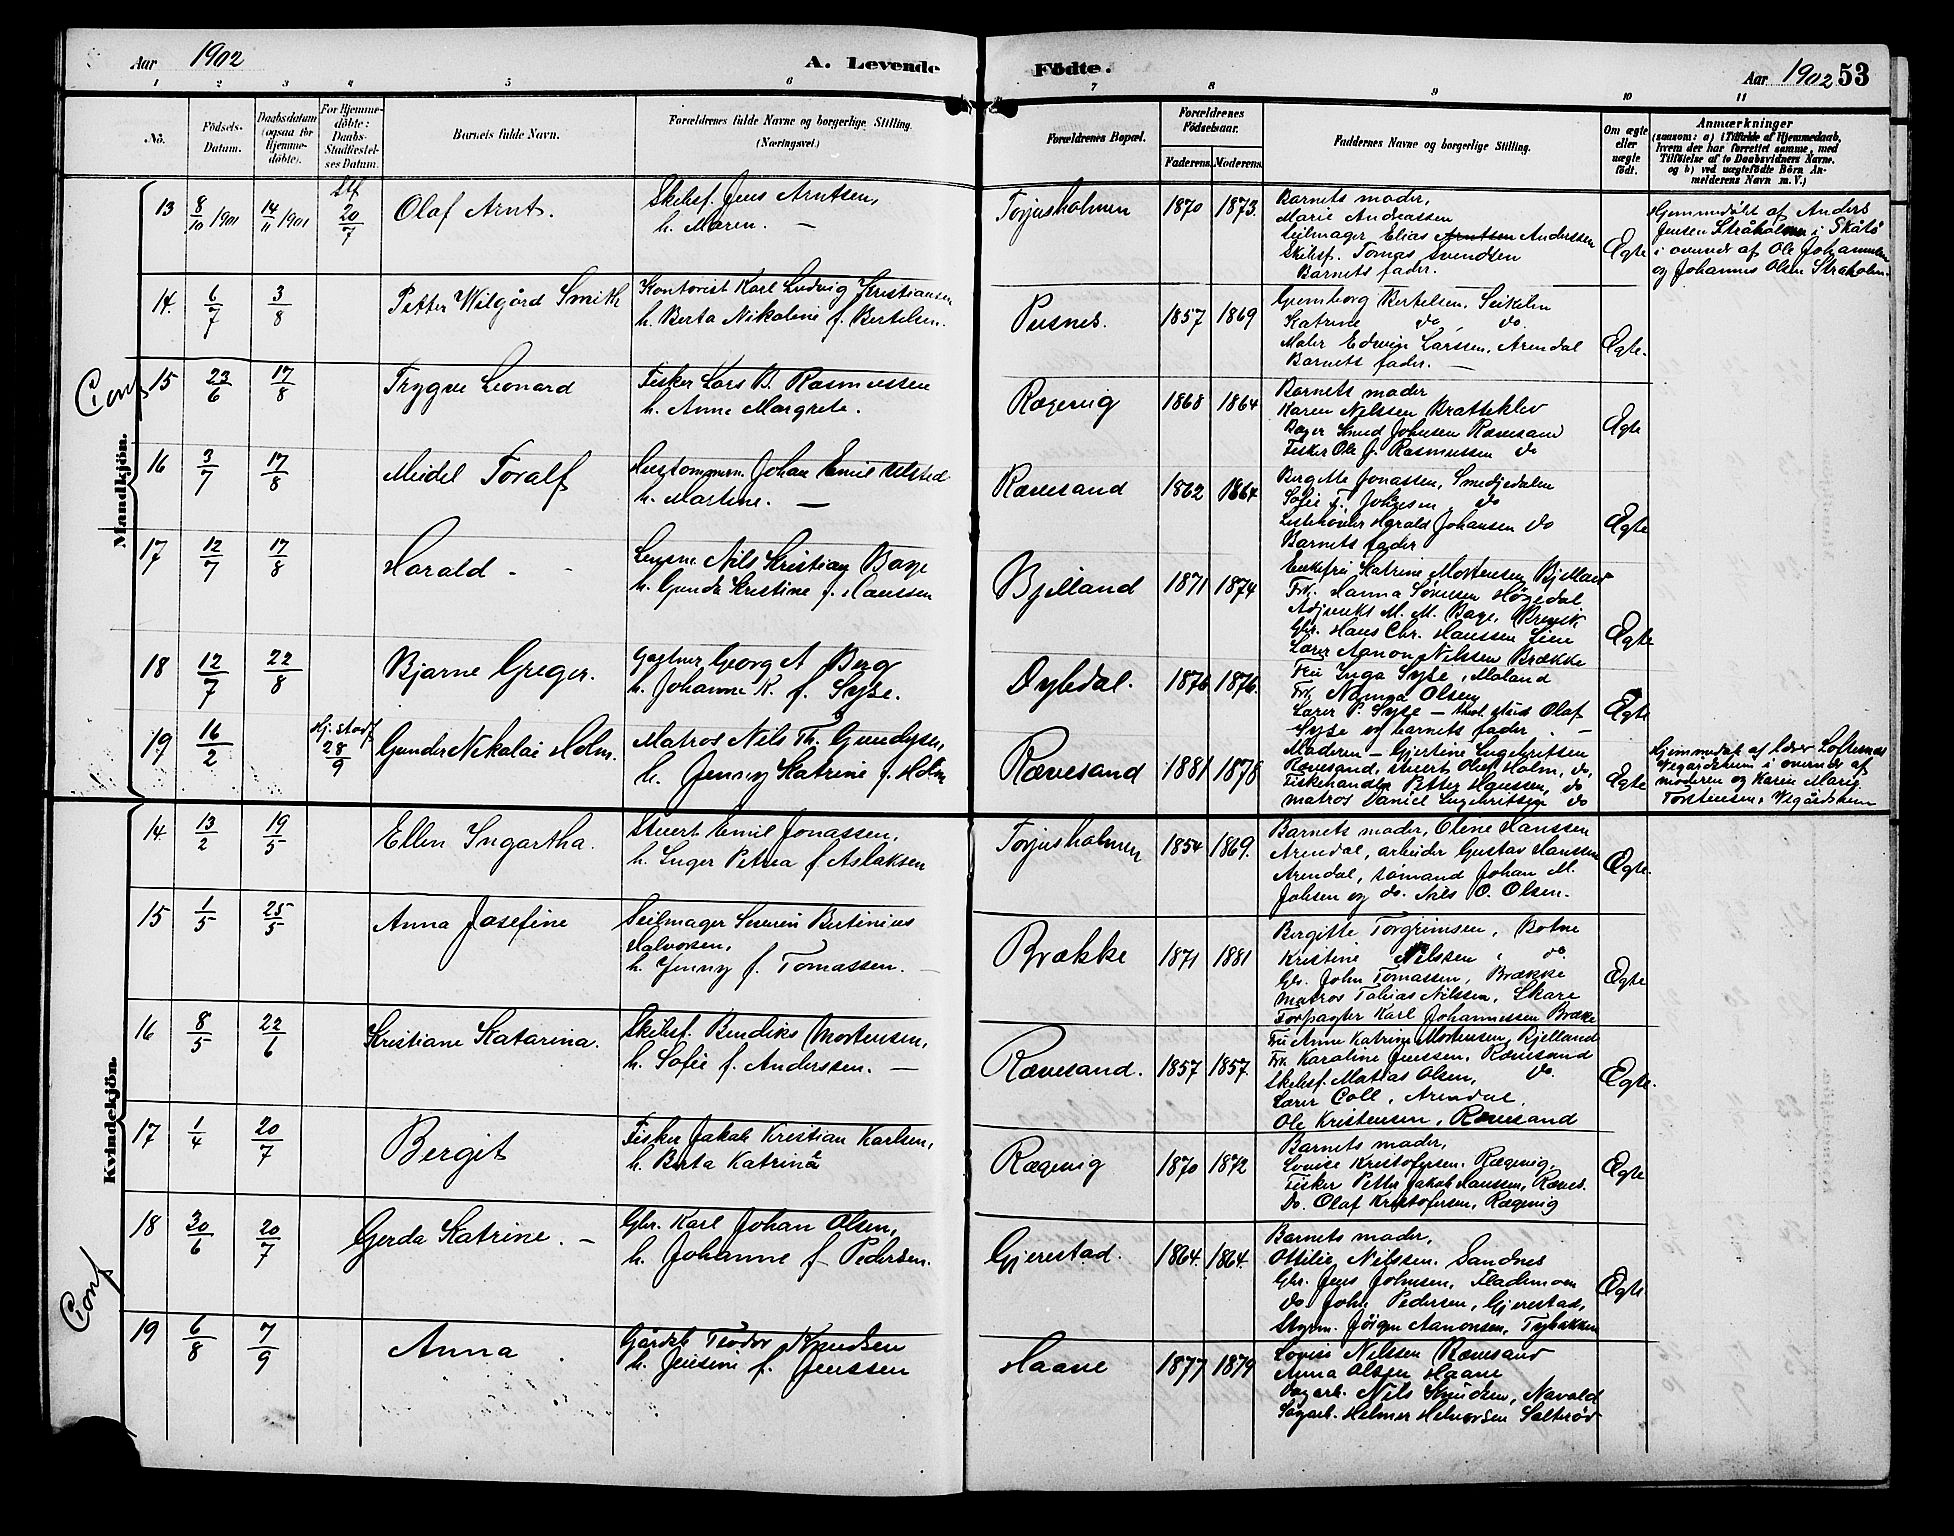 Aar 1902
A. Levende Födte.
Aar 1902 53
1 2 3 4 5 6 7 8 9 10 11
No.
Födsels-Datum.
Daabsdatum (ogsaa for Hjemmedöbte).
For Hjemmedöbte: Daabs-Stadfæstelses Datum.
Barnets fulde Navn.
Forældrenes fulde Navne og borgerlige Stilling. (Næringsvei.)
Forældrenes Bopæl.
Forældrenes Födselsaar.
Faderens. Moderens.
Faddernes Navne og borgerlige Stilling.
Om ægte eller uægte födt.
Anmærkninger
(saasom: a) i Tilfælde af Hjemmedaab, hvem der har forrettet samme, med Tilföielse af to Daabsvidners Navne. og b) ved uægtefödte Börn Anmelderens Navn m. V.)
Mandkjön.
13 8/10 1901 14/11 1901 Stf 20/7 Olaf Arnt.
Skibsf. Jens Arntsen,
h. Maren. —
Torjusholmen 1870 1873.
Barnets moder,
Marie Andreassen
Seilmager Elias Arntsen Anderssen
Skibsf. Tomas Svendsen
Barnets fader.
Ægte
Hjemmedöbt af Anders
Jensen Stråholmen i Skåtö
i overvær af Ole Johannesen
og Johannes Olsen Straholm.
14. 6/7 3/8 Petter Wilgård Smith
Kontorist Karl Ludvig Kristiansen
h. Berta Nikoline f. Bertelsen.
Pusnes. 1857 1869
Gemborg Bertelsen,
Katrine do do
Maler Edwin Larssen, Arendal
Barnets fader. —
Ægte.
Conf
15 23/6 17/8 Trygve Leonard
Fisker Lars B. Rasmussen
h. Anne Margrete.
Rægevig 1868 1864
Barnets moder
Karen Nilssen Bratteklev
Knud Johnsen Rævesand
Fisker Ole J. Rasmussen do
Ægte
16 3/7 17/8 Meidel Toralf
Hustømmerm. Johan Emil Ulsted
h. Martine. —
Rævesand 1862 1864
Birgitte Jonassen, Smedjedalen
Sofie T. Johnsen do
Harald Johansen do
Barnets fader
Ægte
17 12/7 17/8 Harald - -
Lensm. Nils Kristian Bage
h. Gunda Kristine f. Hanssen
Bjelland 1871 1874
Enkefru Katrine Mortensen Bjelland
Frk. Hanna Sørensen Høgedal
Adjunkt M. M. Bage, Brevik
Gbr. Hans Chr. Hanssen Lien
Lærer Aanon Nilssen Brække
Ægte
18 12/7 22/8 Bjarne Greger.
Gartner Georg A Berg
h. Johanne K. f. Syse.
Dybedal. 1876 1876.
Fru Inga Syse, Moland
Frk. Nanna Olsen
Lærer P. Syse — theol. stud Olaf
Syse og barnets fader. -
Ægte
19 16/2 Hj. stadf 28/9 Gunder Nikolai Holm.
Matros Nils Th. Gundersen,
h. Jenny Katrine f. Holm
Rævesand 1881 1878
Moderen — Gjertine Ingebritsen
Rævesand, stuert Oluf Holm, do,
Fiskehandler Petter Hanssen, do
matros Daniel Ingebritsen do
Ægte
Hjemmedøbt af lærer Loftesnes
Vegårdsheim i overvær af
moderen og Karen Marie
Torstensen, Vegårdsheim
Kvindekjön.
14. 13/2 19/5 Ellen Ingartha.
Stuert Emil Jonassen,
h. Inger Petrea f Aslaksen
Torjusholmen 1854 1869.
Barnets moder, Oline Hanssen
Arendal, arbeider Gustav Hanssen
Arendal, sømand Johan M.
Johsen og do. Nils O. Olsen.
Ægte.
15 1/5 25/5 Anna Josefine
Seilmager Severin Bertinius
Halvorsen,
h. Jenny f. Tomassen. —
Brække 1871 1881
Birgitte Torgrimsen, Botne
Kristine Nilssen, do
Gbr. John Tomassen, Brække
Matros Tobias Nilssen, Skare
Forpagter Karl Johannessen Brække
Ægte
16 8/5 22/6 Kristiane Katarina.
Skibsf. Bendiks Mortensen,
h. Sofie f. Anderssen. —
Rævesand. 1857 1857.
Fru Anne Katrine Mortensen, Bjelland
Frk. Karoline Jenssen, Rævesand
Skibsf. Matias Olsen, do.
Lærer Coll, Arendal,
Ole Kristensen, Rævesand
Ægte.
17 1/4 20/7 Bergit
Fisker Jakob Kristian Karlsen,
h. Berta Katrina
Rægevig 1870 1872
Barnets moder,
Lovise Kristofersen, Rægevig,
Fisker Petter Jakob Hanssen,Ræves.
Do. Olaf Kristofersen, Rægevig
Ægte
18 30/6 20/7 Gerda Katrine. —
Gbr. Karl Johan Olsen,
h. Johanne f. Pedersen.
Gjerestad. 1864. 1864.
Barnets moder,
Ottilie Nilssen. Sandnes
Gbr. Jens Johnsen, Flademoen
Do John Pedersen, Gjerestad,
Styrm. Jörgen Aanonsen, Tybakken
Ægte
Conf
19 6/8 7/9 Anna.
Gårdb Teodor Knudsen
h. Jensine f. Jenssen
Haane 1877 1879
Lovise Nilssen Rævesand
Anna Olsen Haane
Dagarb. Nils Knudsen, Navold
Sagarb. Helmer Halvorsen Saltrød